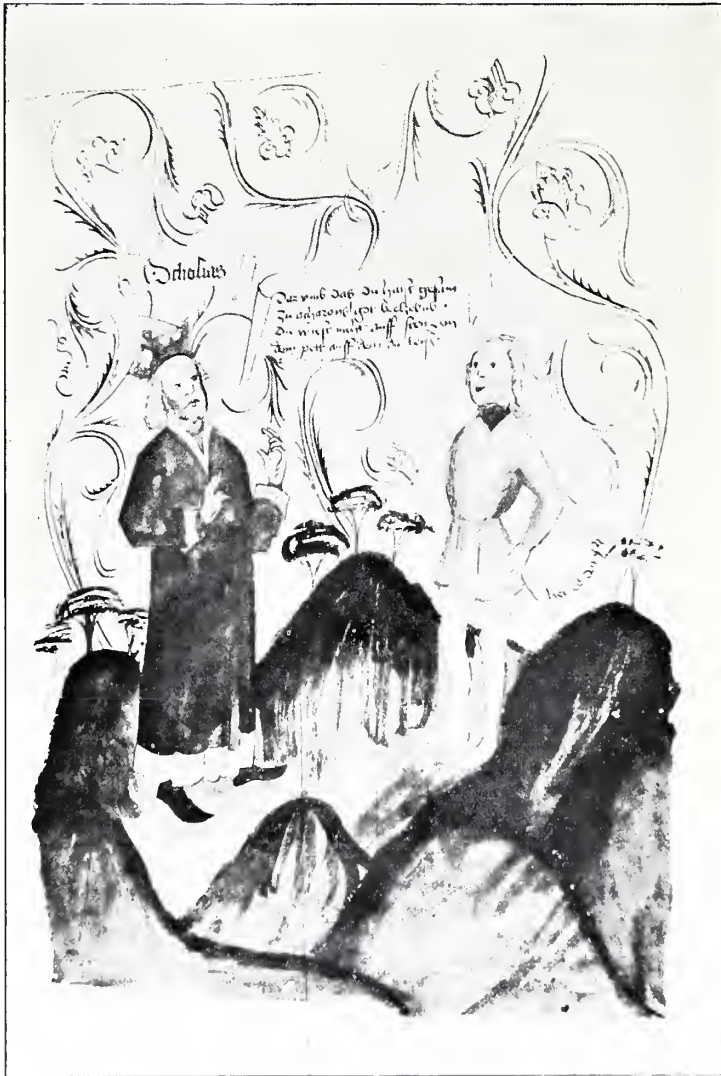 Scholaris
Dar vmb das du hast gesant
Zu acharons got beelzebub
Du wirst nicht auff sten von
dem pett auff dem du leist